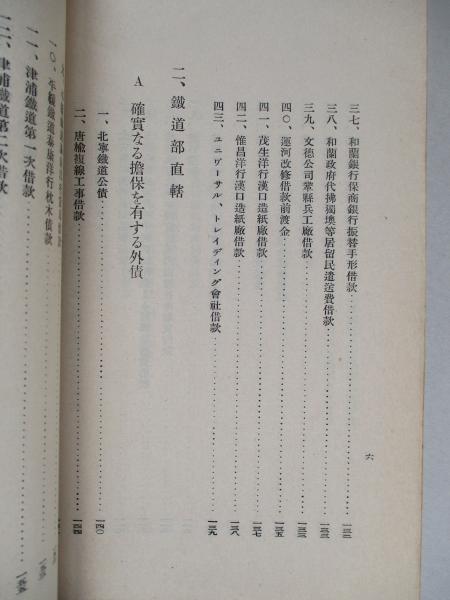 三七、和蘭銀行保商銀行振替手形借款…………一三二
三八、和蘭政府代拂獨墺等居留民遣送費借款…………一三三
三九、文德公司鞏縣兵工廠借款…………一三三
四〇、運河改修借款前渡金…………一三五
四一、茂生洋行漢口造紙廠借款…………一三七
四二、愼昌洋行漢口造紙廠借款…………一三八
四三、ユニヴーサル、トレイディング會社借款…………一三九
二、鐵道部直轄
A 確實なる擔保を有する外債
一、北寧鐵道公債…………一四〇
二、唐楡複線工事借款…………一四四
一〇、平綏鐵道泰康洋行枕木債款
一一、津浦鐵道第一次借款
一二、津浦鐵道第二次借款
六